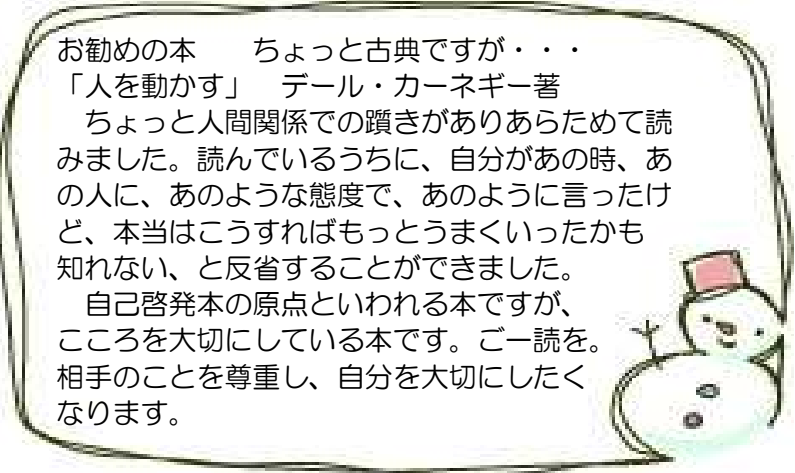 お勧めの本　　ちょっと古典ですが・・・
「人を動かす」　デール・カーネギー著
　ちょっと人間関係での躓きがありあらためて読
みました。読んでいるうちに、自分があの時、あ
の人に、あのような態度で、あのように言ったけ
ど、本当はこうすればもっとうまくいったかも
知れない、と反省することができました。
　自己啓発本の原点といわれる本ですが、
こころを大切にしている本です。ご一読を。
相手のことを尊重し、自分を大切にしたく
なります。